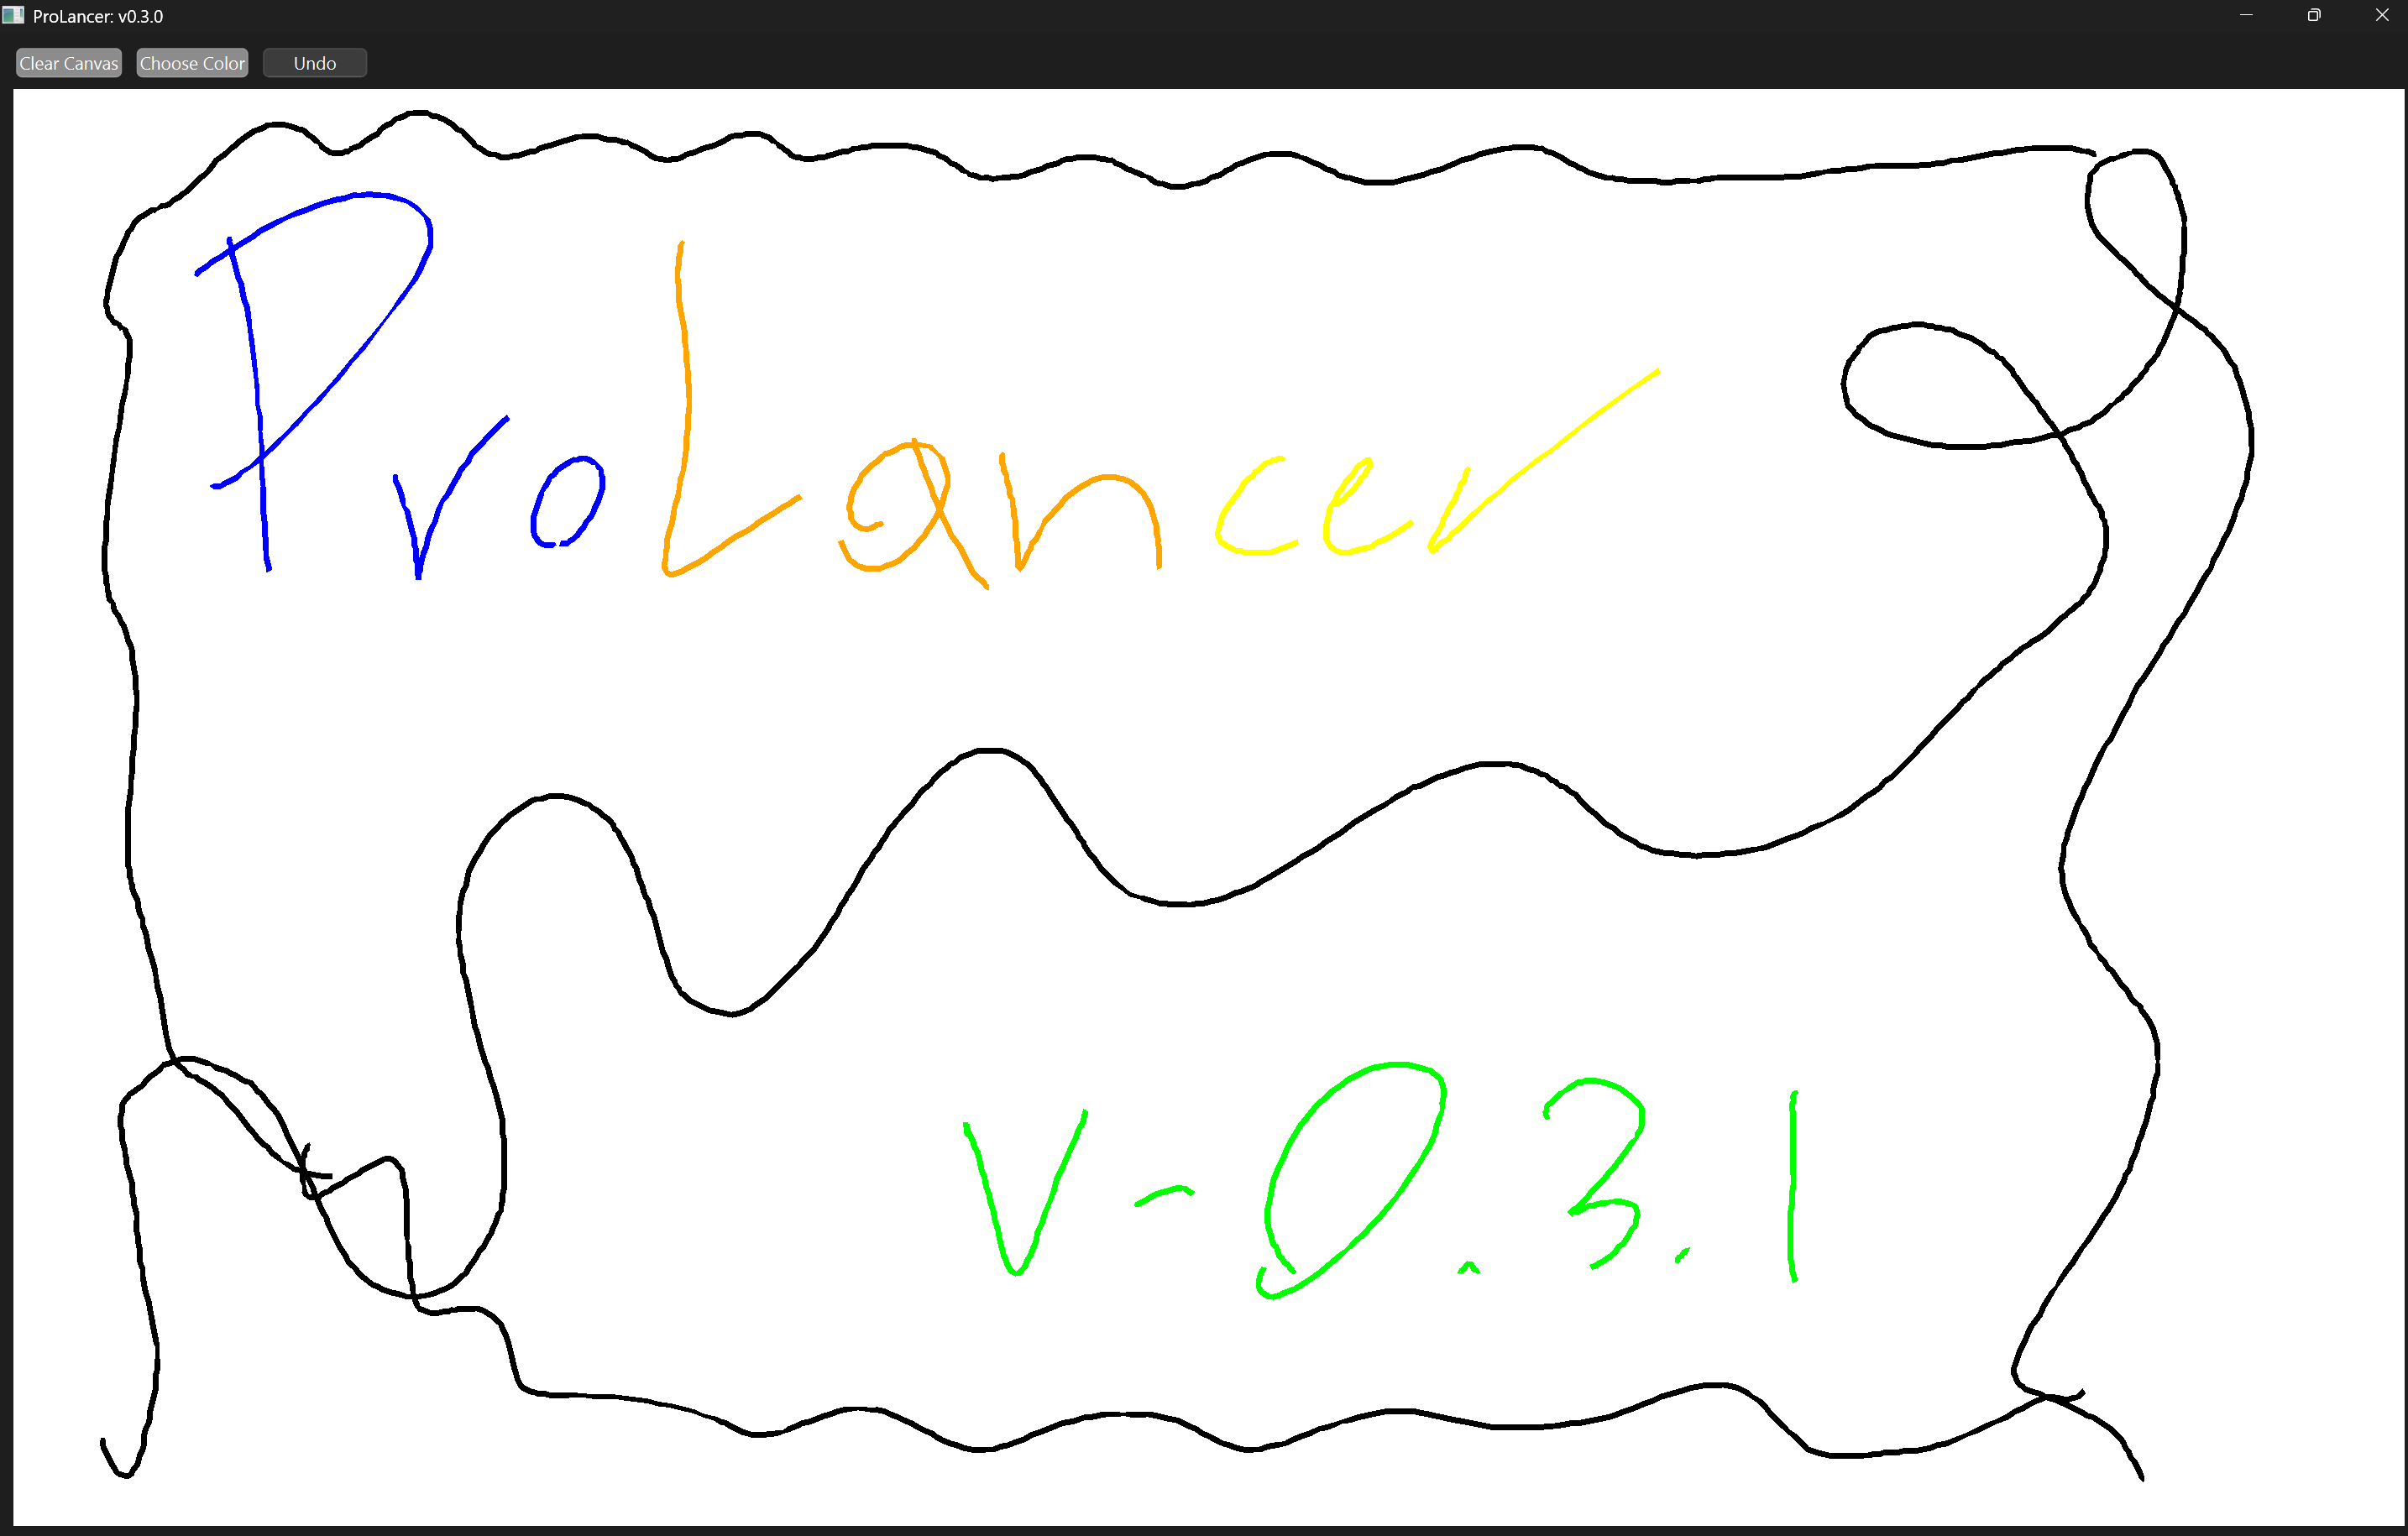 ProLancer: v0.3.0
Clear Canvas Choose Color Undo
ProLancer
V-0.3.1